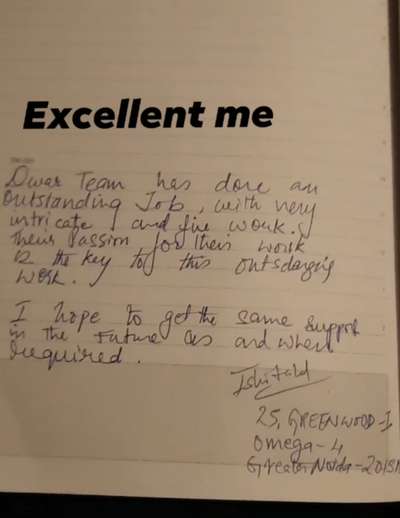 Excellent me
Dwar Team has done an
Outstanding Job, with very
intricate and fine work.
Their Passion for their work
is the key to this outsdanging
work.
I hope to get the same support
in the Future as and when
required.
25, GREENWOOD-I
Omega-4
Greater Noida-2013